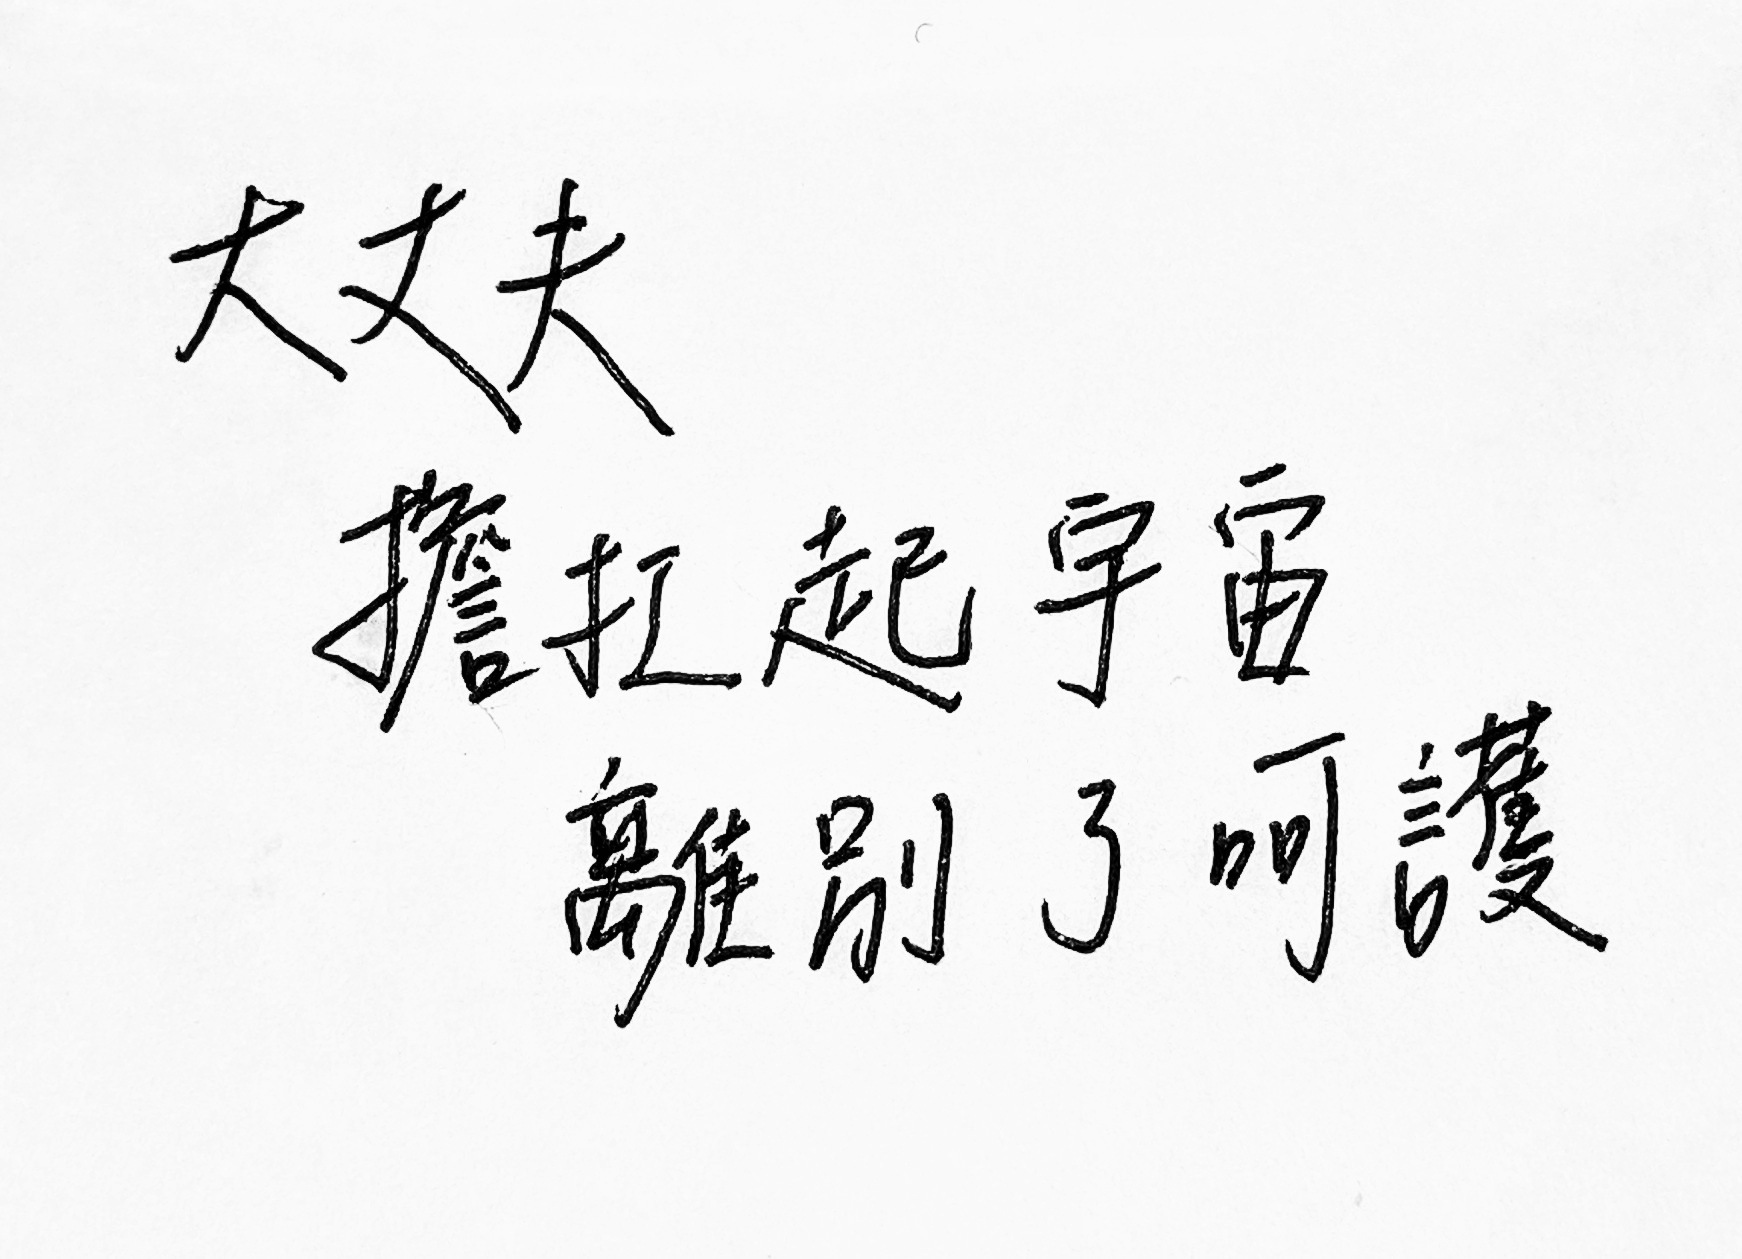 大丈夫
擔扛起宇宙
離別了呵護